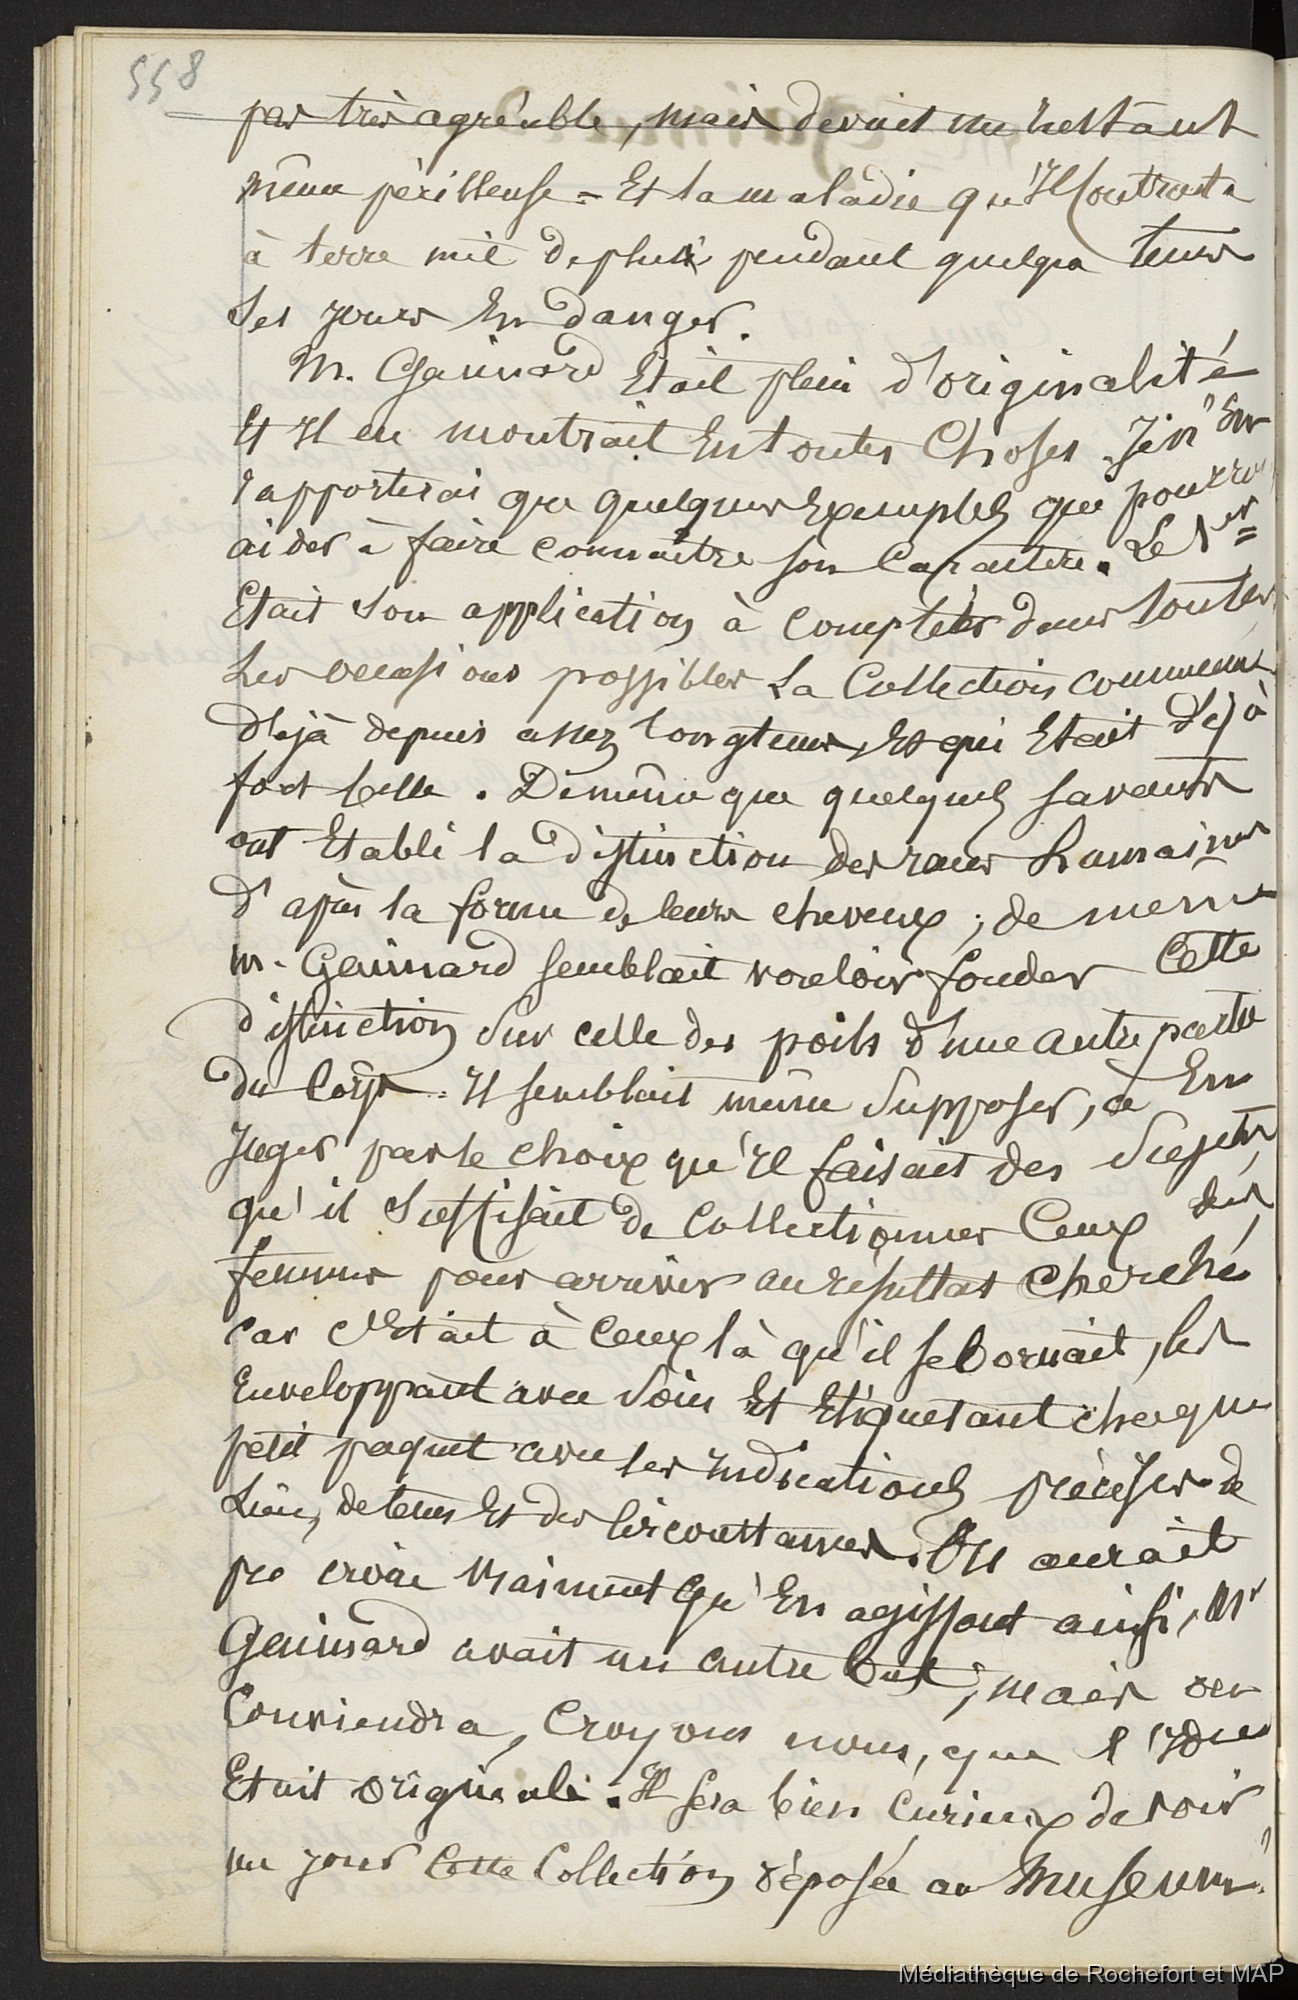 558
pas très agréable, mais devint un instant
même périlleuse = Et la maladie qu'Il contracta
à terre mit de plus pendant quelque tems
ses jours En danger.
M. Gaimard Etait plein d'originalité
Et Il en montrait En toutes Choses. Je n'En
rapporterai que quelques Exemples qui pourront
aider à faire connaitre son Caractère. Le 1er
Etait son application à compléter dans toutes
Les occasions possibles La Collection commencée
déjà depuis assez longtems, Et qui Etait déjà
fort belle. De même que quelques savants
ont Etabli la distinction des races humaines
d'après la forme de leurs cheveux ; de meme
M. Gaimard semblait vouloir fonder Cette
distinction Sur celle des poils d'une autre partie
du Corps. Il semblait même Supposer, à En
Juger par le choix qu'Il faisait des Sujets,
qu'il Suffisait de Collectionner Ceux des
femmes pour arriver au résultat Cherché
car C'Etait à Ceux là qu'il se bornait, les
Enveloppant avec Soin Et Etiquetant chaque
petit paquet avec les Indications précises de
Lieu, de tems Et des Circonstances. On aurait
pu croire Vraiment qu'En agissant ainsi, Mr
Gaimard avait un autre but ; mais on
Conviendra, Croyons nous, que l'Idée
Etait originale. Il sera bien Curieux de voir
un jour Cette Collection déposée au Museum.
Médiathèque de Rochefort et MAP